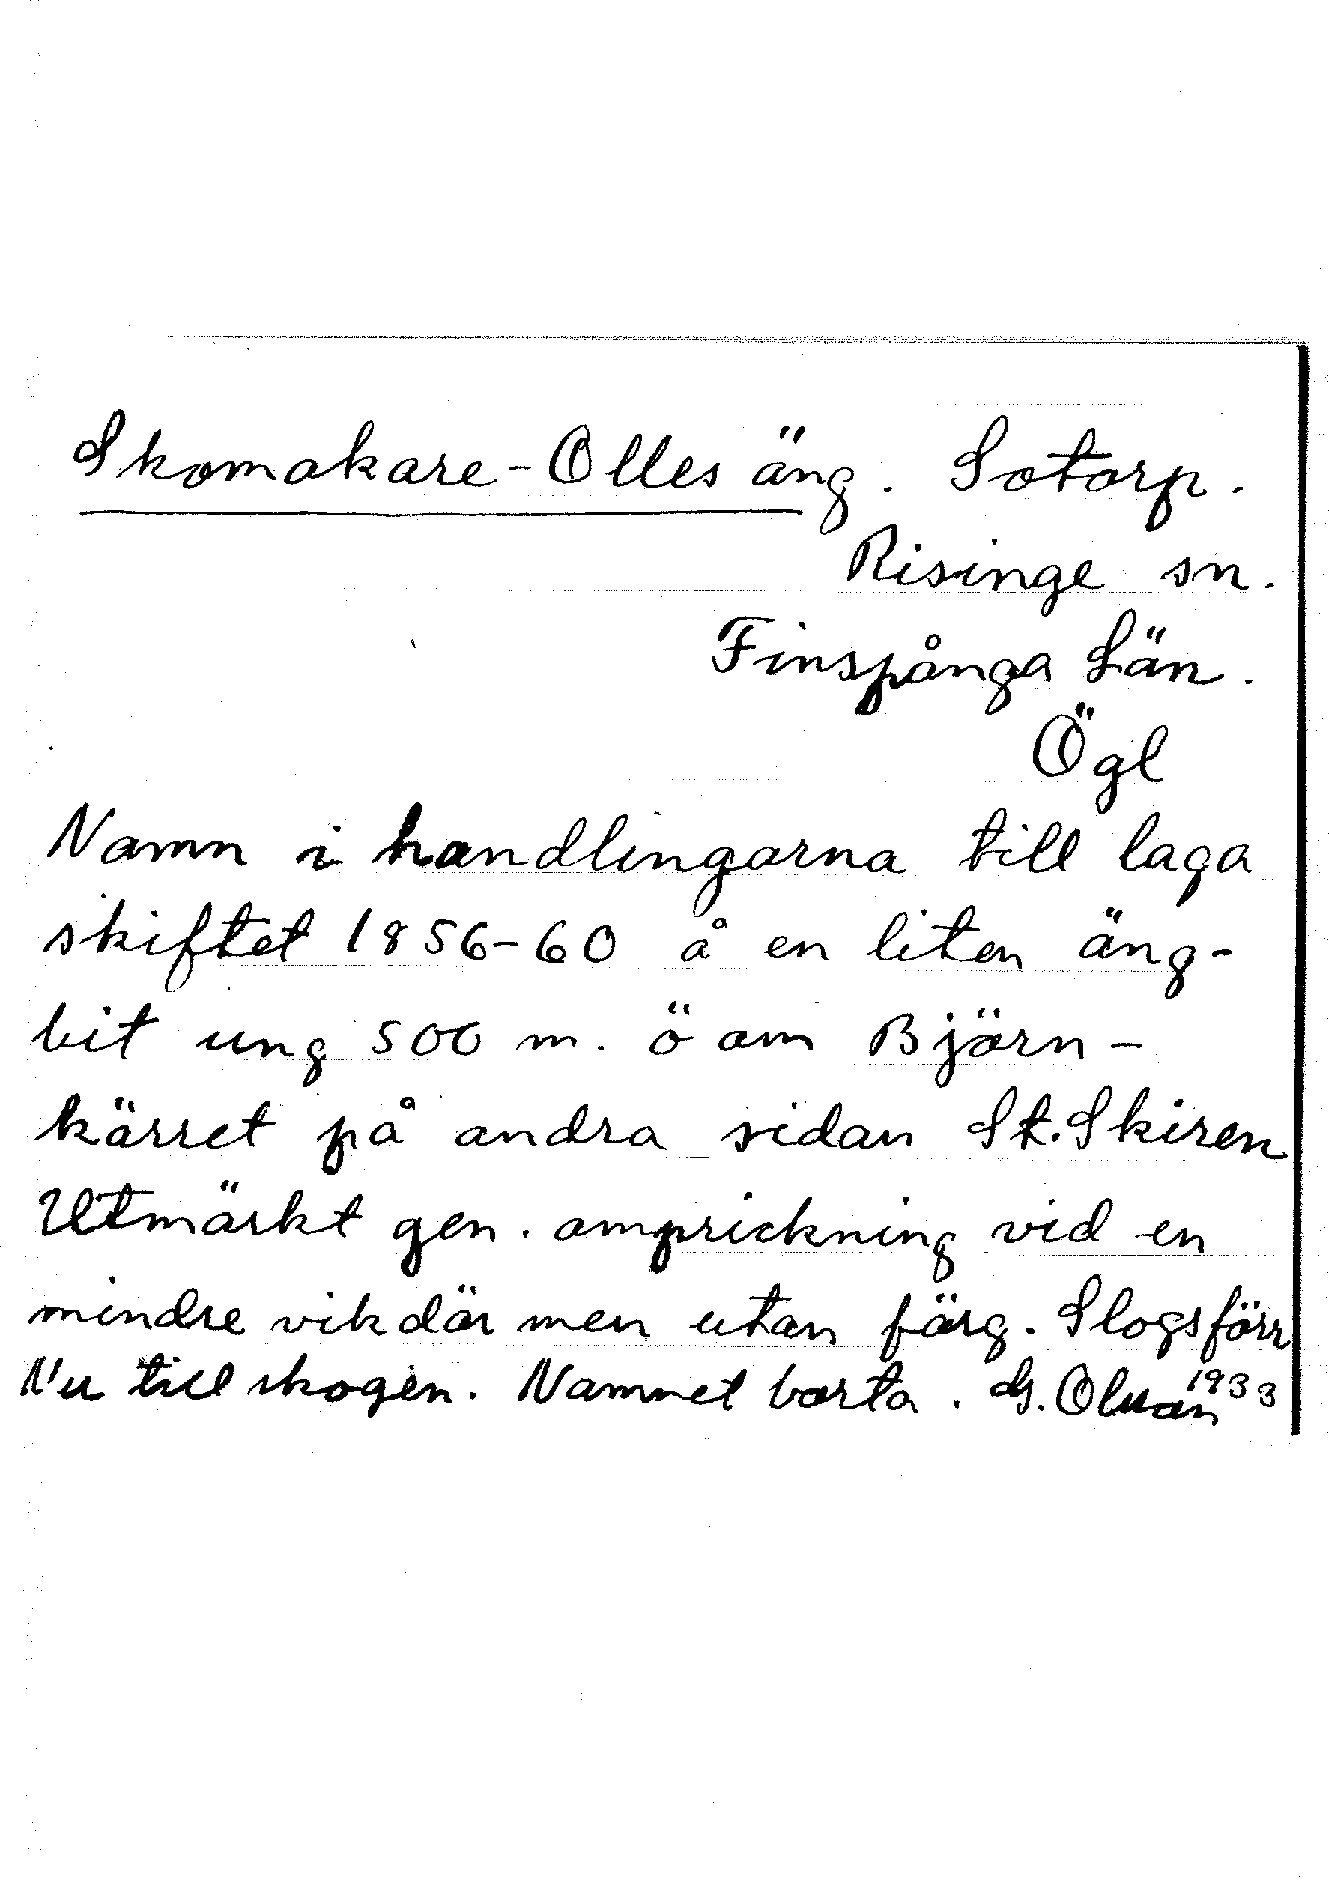 Skomakare-Olles äng. Sotorp.
Risinge sn.
Finspånga Län.
Ögl
Namn i handlingarna till laga
skiftet 1856-60 å en liten äng-
bit ung 500 m. ö om Björn-
kärret på andra sidan St. Skiren
Utmärkt gen. omprickning vid en
mindre vik där men utan färg. Slogs förr
Nu till skogen. Namnet borta. G. 1933